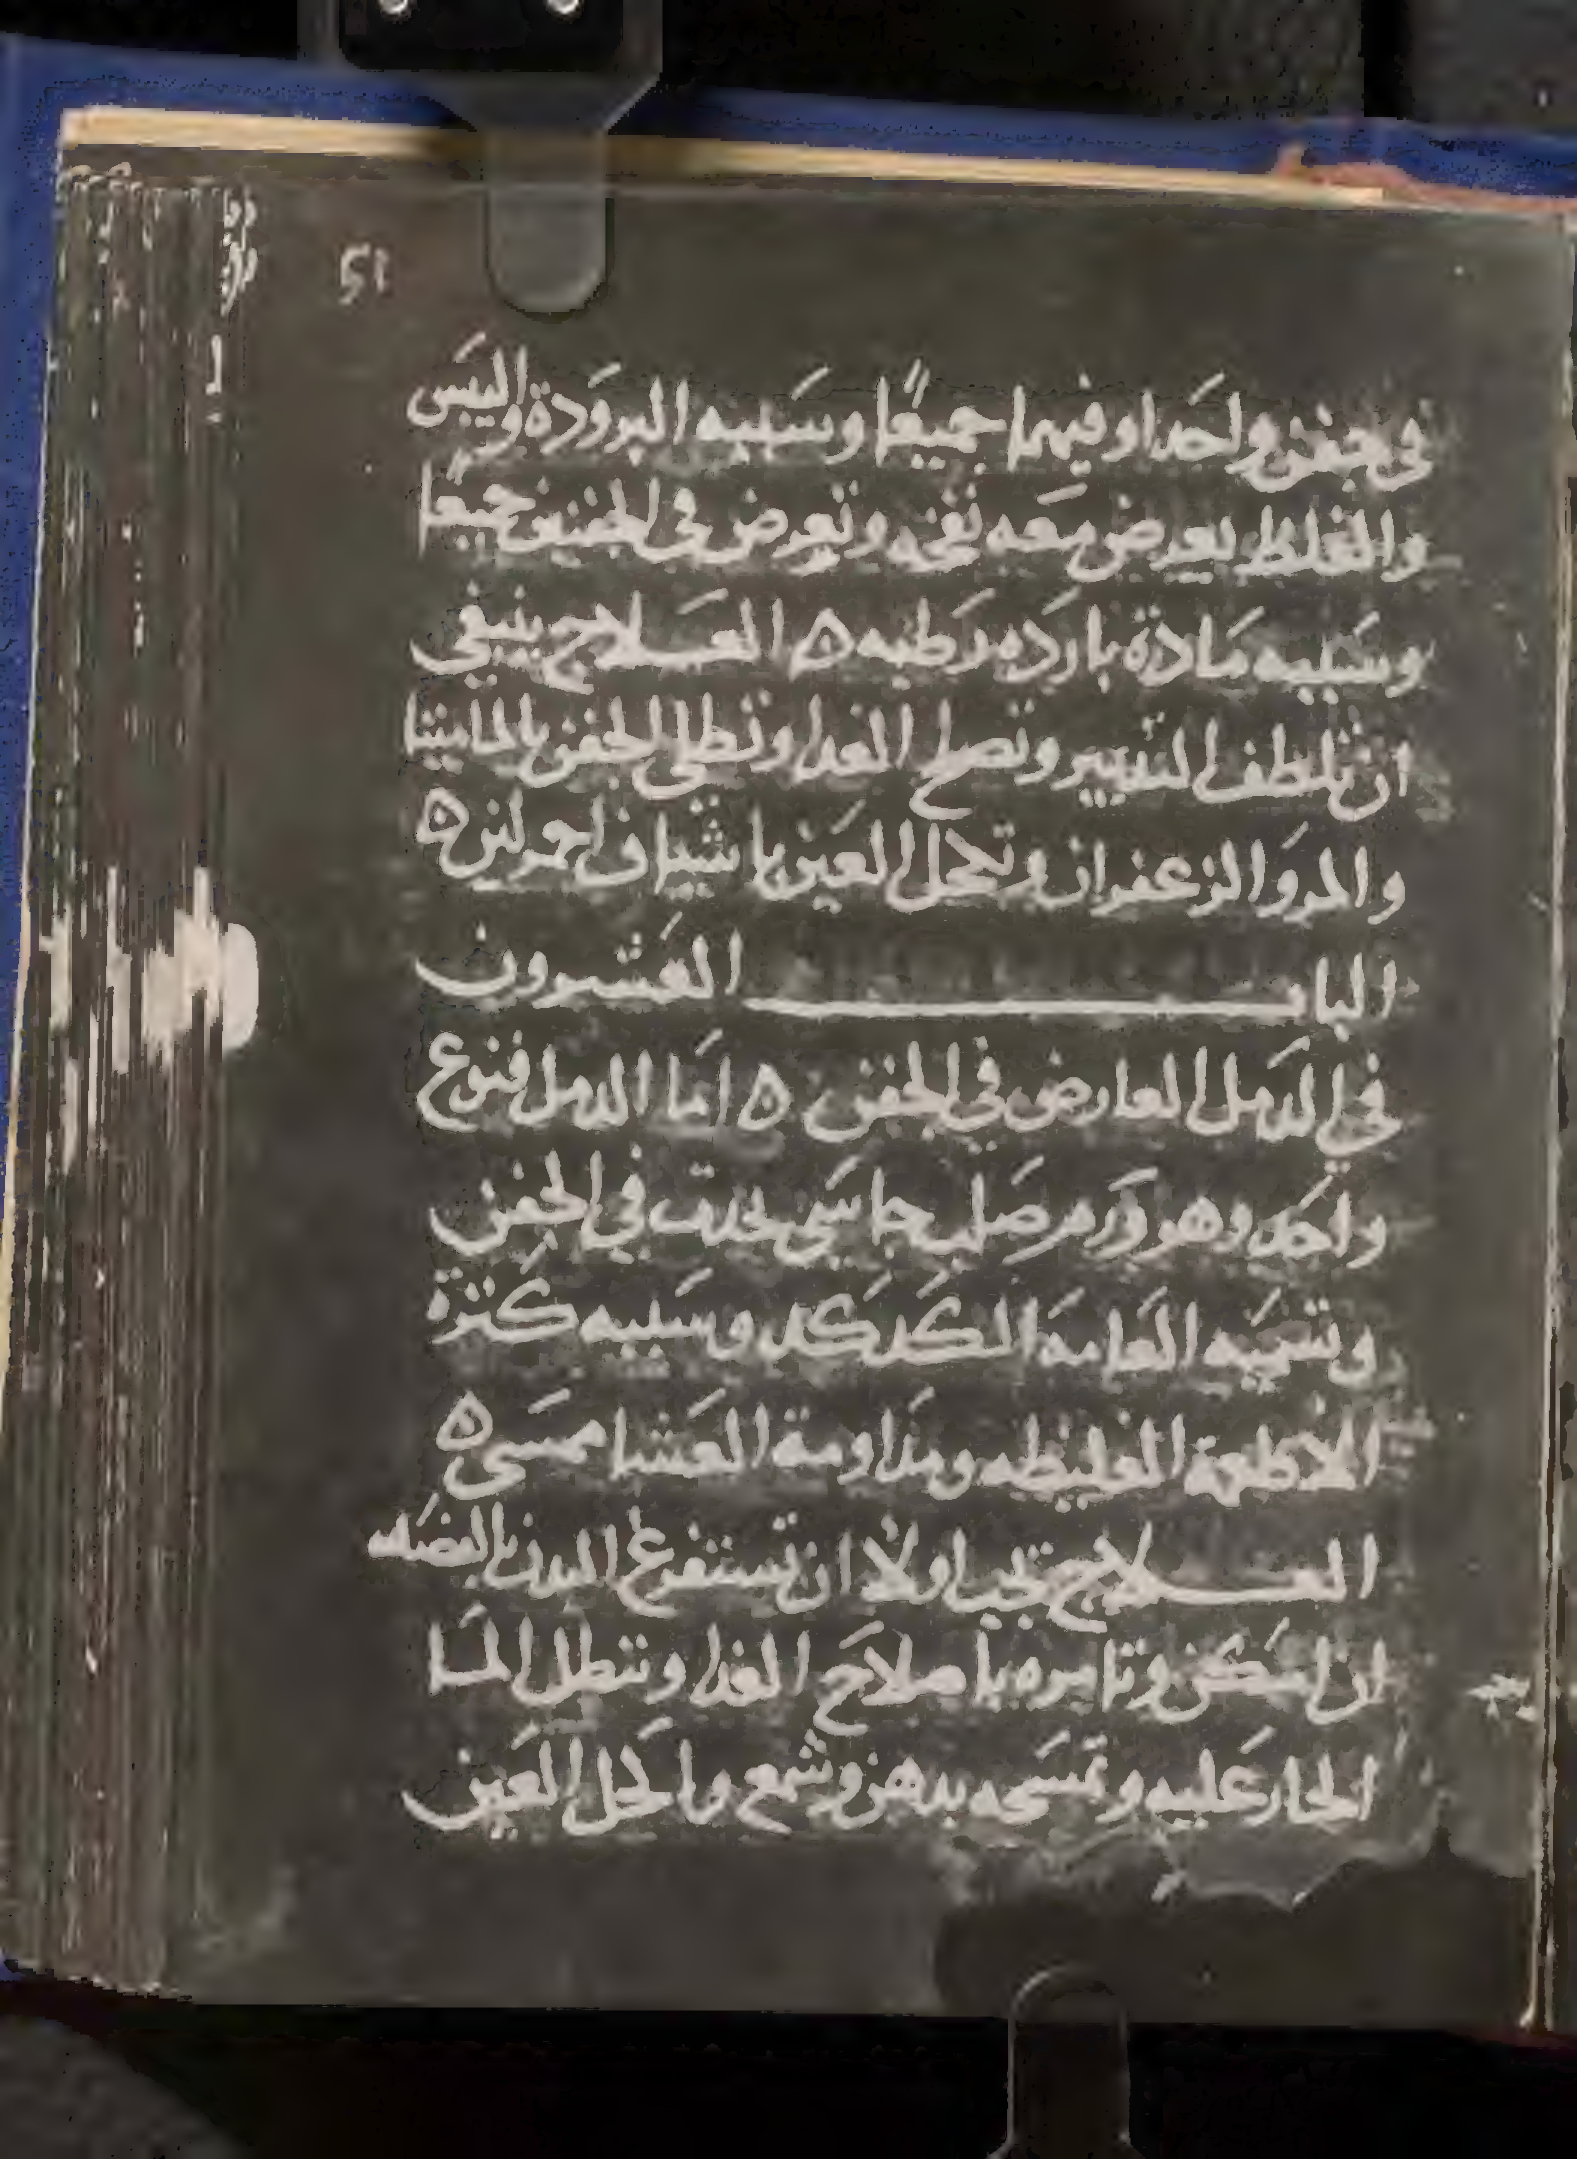 51
في جفن واحد او فيهما جميعًا وسببه البرودة واليبس
والغلظ يعرض معه نفخه وتعرض في الجفنين جميعًا
وسببه مادة بارده رطبه ه العلاج ينبغي
ان تلطف التدبير وتصلح الغدا وتطلي الجفن بالماميتا
والمر والزعفران وتكحل العين باشياف احمر لين ه
الباب العشرون
في الدمل العارض في الجفن ه اما الدمل فنوع
واحد وهو ورم صلب جاسي يحدث في الجفن
وتسميه العامه الكدكد وسببه كثرة
الاطعمة الغليظه ومداومة العشا ممسى ه
العلاج يجب اولًا ان تستفرغ البدن بالفصد
ان امكن وتامره باصلاح الغدا وتنطل الما
الحار عليه وتمسحه بدهن وشمع واكحل العين